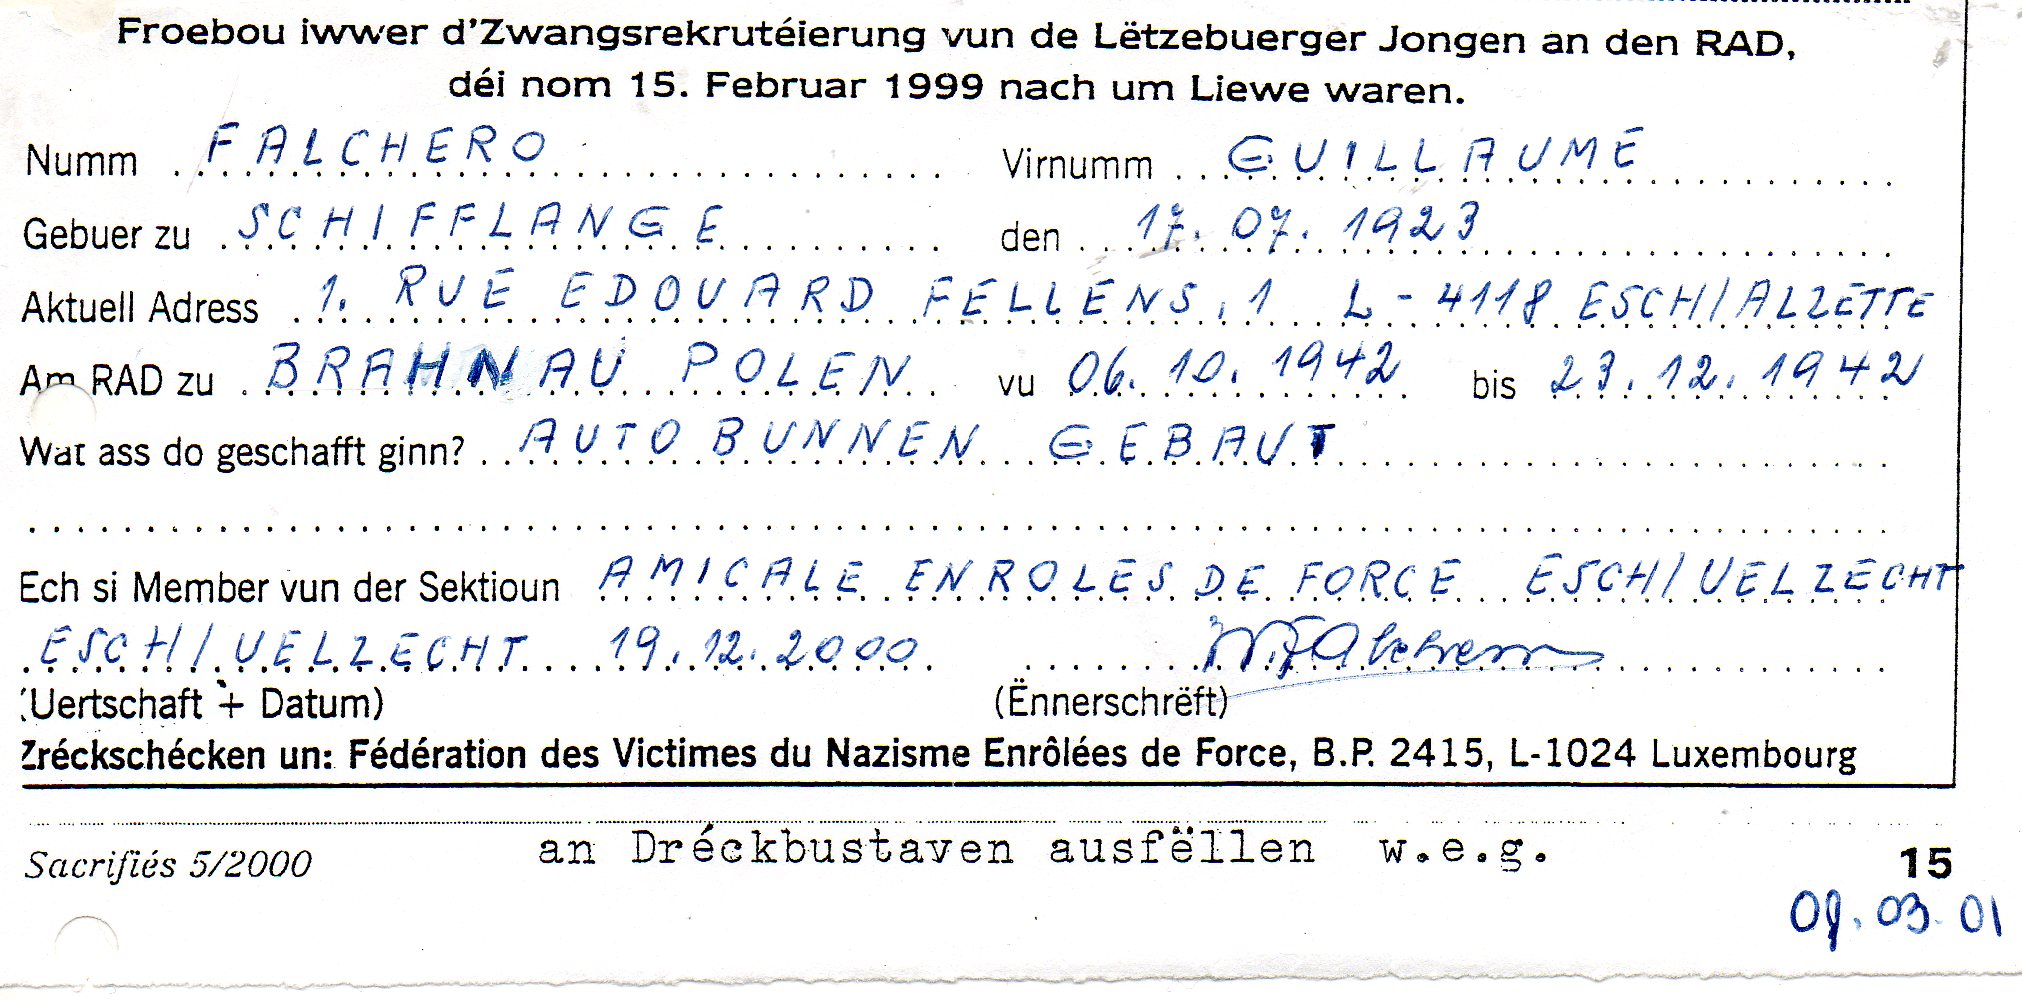 Froebou iwwer d'Zwangsrekrutéierung vun de Lëtzebuerger Jongen an den RAD,
déi nom 15. Februar 1999 nach um Liewe waren.
Numm FALCHERO Virnumm GUILLAUME
Gebuer zu SCHIFFLANGE den 17.07.1923
Aktuell Adress 1. RUE EDOUARD FELLENS, 1 L-4118 ESCH/ALZETTE
Am RAD zu BRAHNAU POLEN vu 06.10.1942 bis 23.12.1942
Wat ass do geschafft ginn? AUTOBUNNEN GEBAUT
Ech si Member vun der Sektioun AMICALE ENROLES DE FORCE ESCH/UELZECHT
ESCH/UELZECHT 19.12.2000
(Uertschaft + Datum) (Ënnerschrëft)
Zréckschécken un: Fédération des Victimes du Nazisme Enrôlées de Force, B.P. 2415, L-1024 Luxembourg
an Dréckbustaven ausfëllen w.e.g.
Sacrifiés 5/2000 15
09.03.01